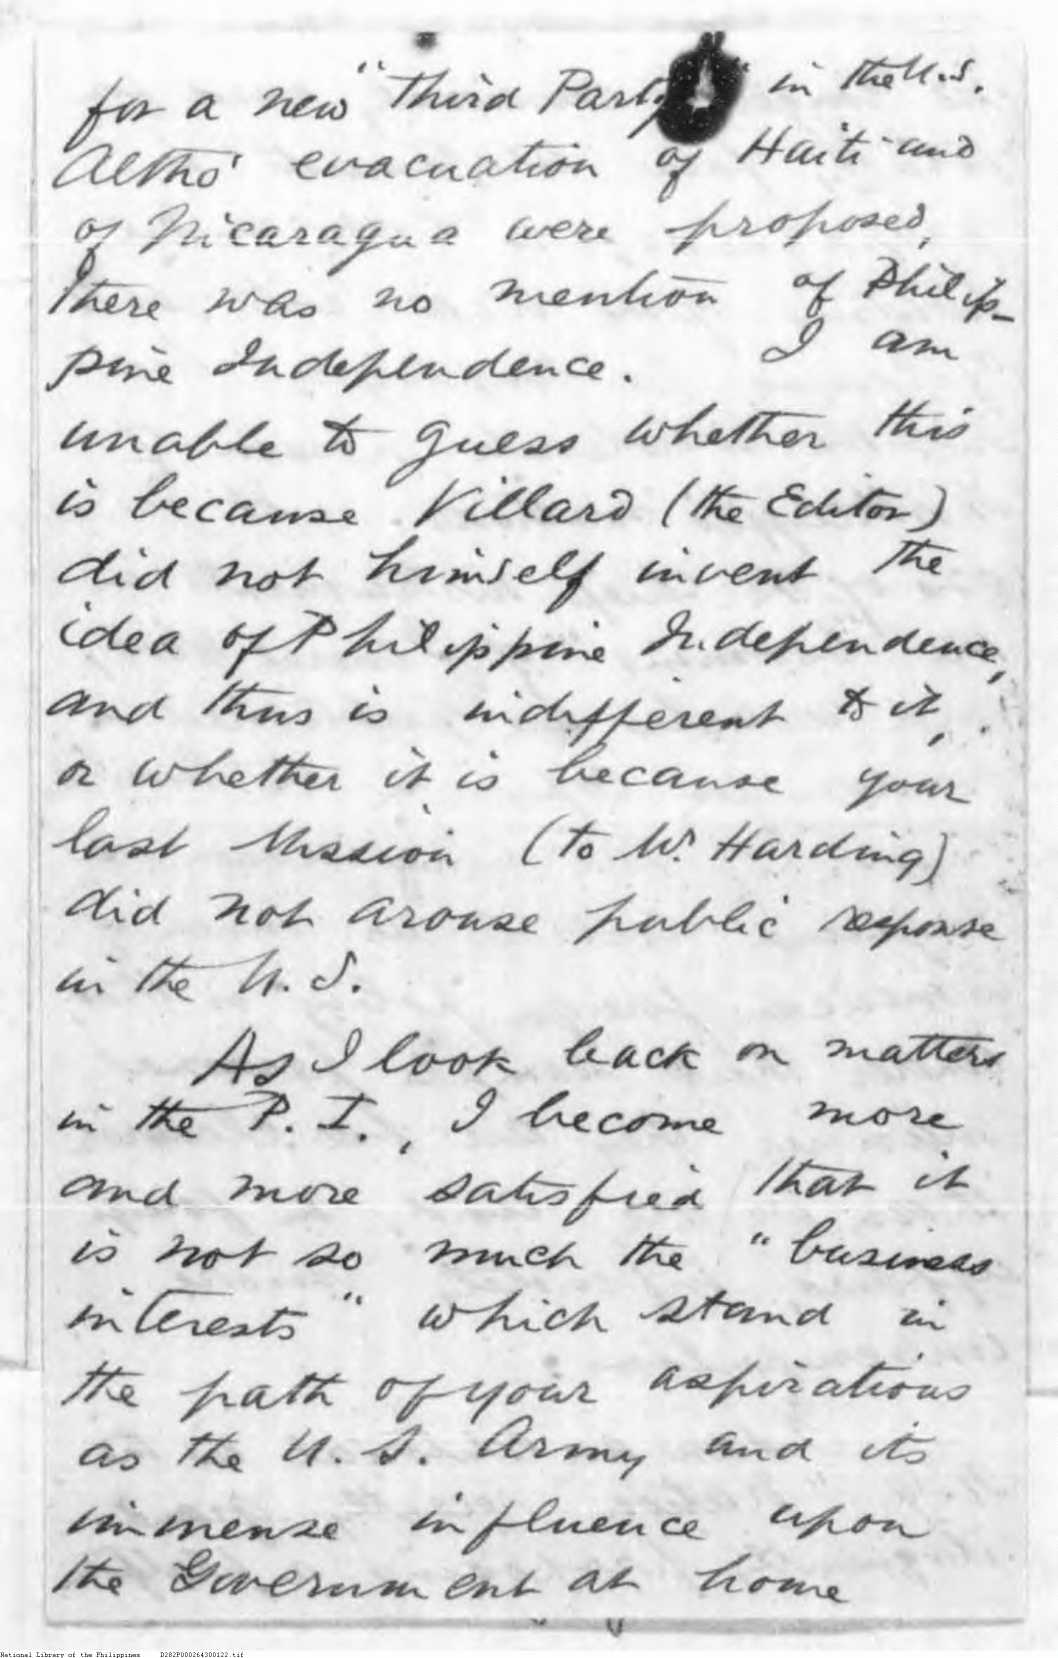 for a new "Third Party" in the U.S.
Altho' evacuation of Haiti and
of Nicaragua were proposed,
there was no mention of Philip-
pine Independence. I am
unable to guess whether this
is because Villard (the Editor)
did not himself invent the
idea of Philippine Independence,
and thus is indifferent to it,
or whether it is because your
last Mission (to W. Harding)
did not arouse public response
in the U.S.
As I look back on matters
in the P.I., I become more
and more satisfied that it
is not so much the "business
interests" which stand in
the path of your aspirations
as the U.S. Army and its
immense influence upon
the Government at home
National Library of the Philippines D282P000264300122.tif